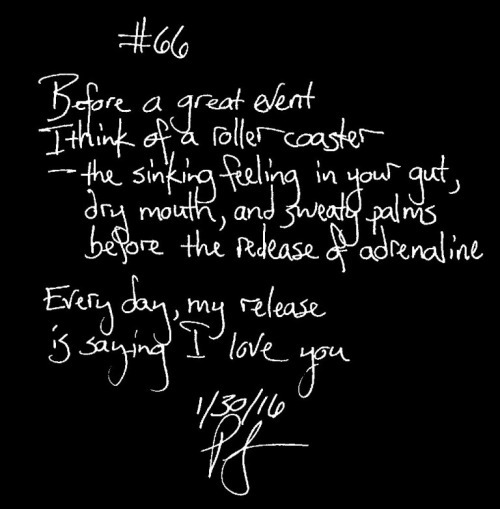 #66
Before a great event
I think of a roller coaster
– the sinking feeling in your gut,
dry mouth, and sweaty palms
before the release of adrenaline
Every day, my release
is saying I love you
1/30/16